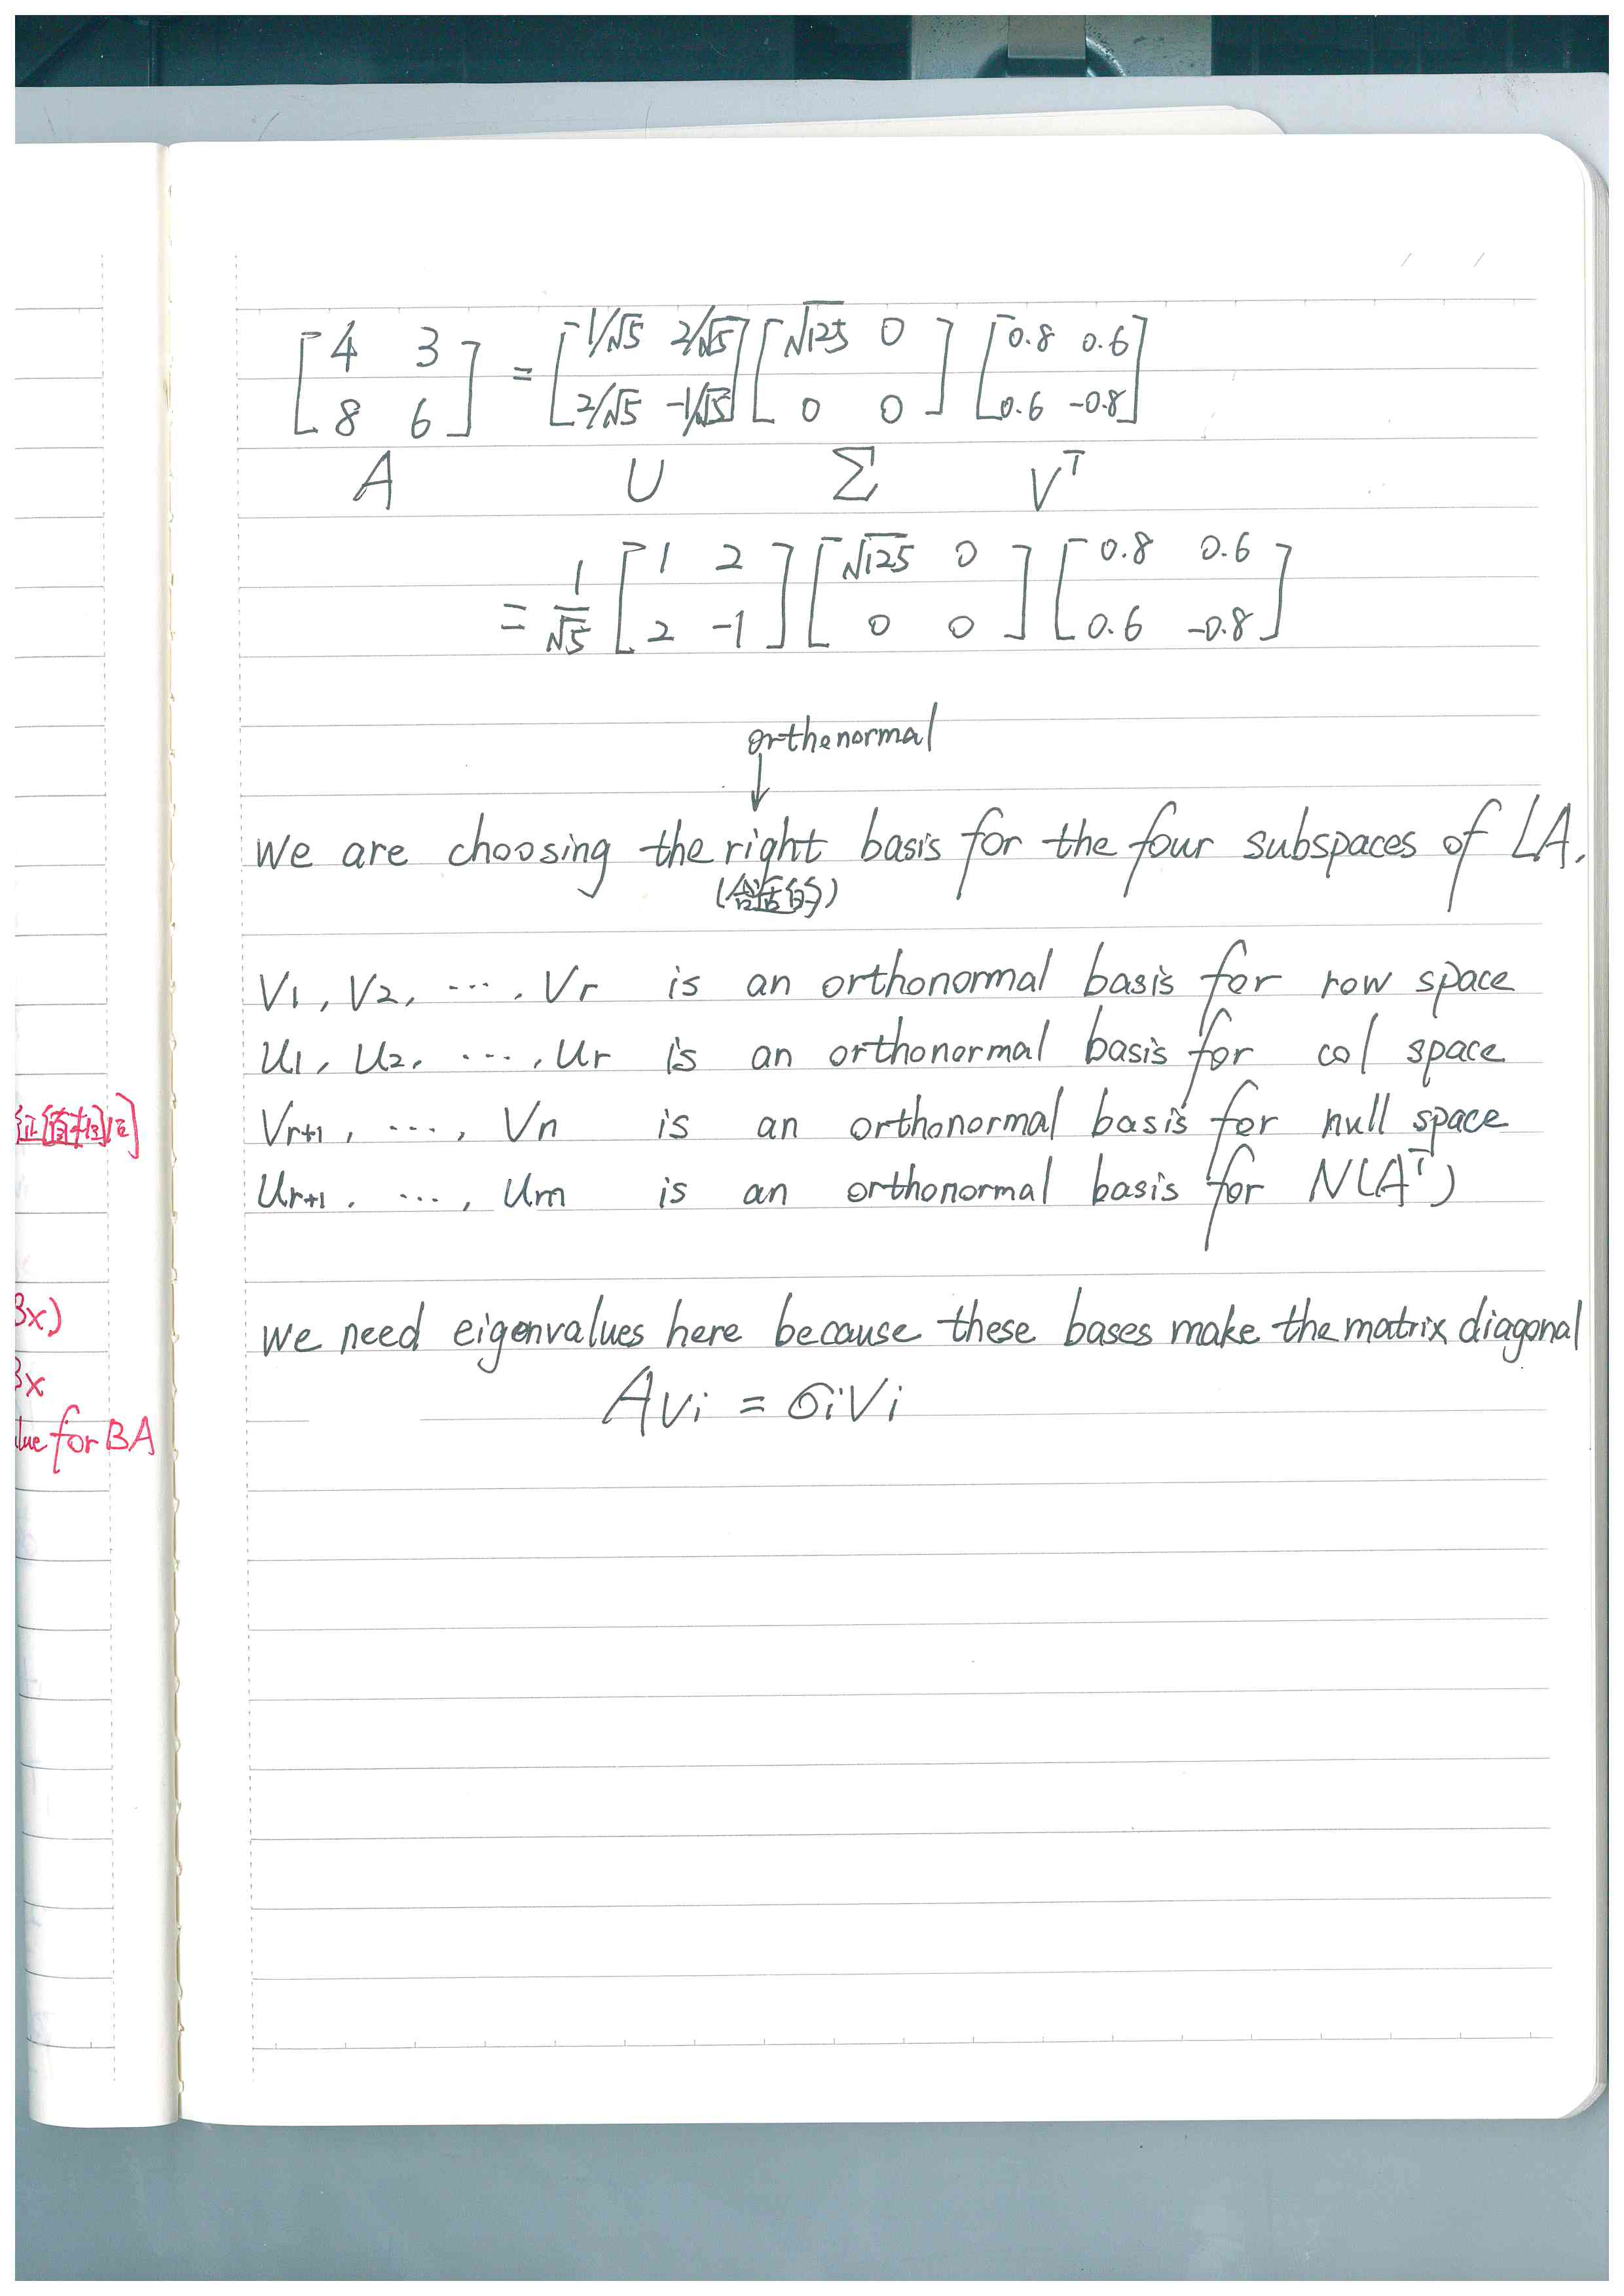 [4 3 8 6] = [1/√5 2/√5 2/√5 -1/√5] [√125 0 0 0] [0.8 0.6 0.6 -0.8]
A U Σ V^T
= 1/√5 [1 2 2 -1] [√125 0 0 0] [0.8 0.6 0.6 -0.8]
orthenormal
↓
we are choosing the right basis for the four subspaces of LA.
(合适的)
V1, V2, ..., Vr is an orthonormal basis for row space
U1, U2, ..., Ur is an orthonormal basis for col space
Vr+1, ..., Vn is an orthonormal basis for null space
Ur+1, ..., Um is an orthonormal basis for N(A^T)
we need eigenvalues here because these bases make the matrix diagonal
Avi = σiVi
征值相同]
Bx)
Bx
lue for BA